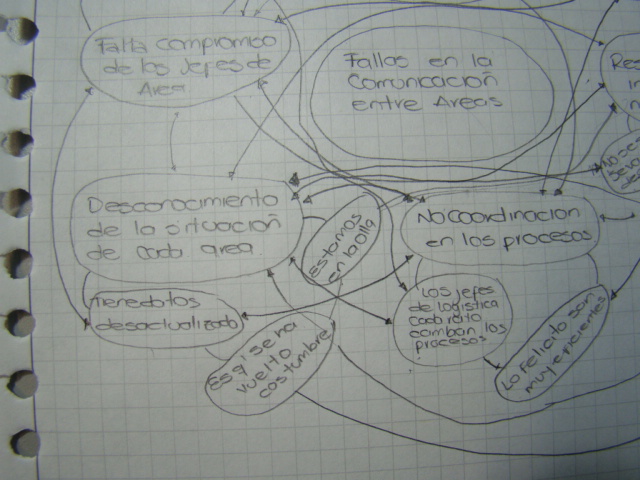 Falta compromiso
de los Jefes de
Area
Fallas en la
Comunicación
entre Areas
Res
in
n
Desconocimiento
de la situación
de cada area
estamos
en la olla
No coordinacion
en los procesos
Tienedatos
desactualizado
Los jefes
de logistica
cada rato
cambian los
procesos
Es q' se ha
vuelto
costumbre
Lo felicito son
muy eficientes